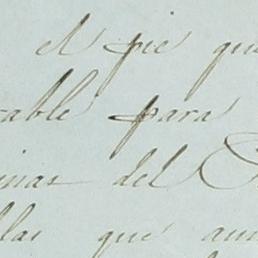 el pie que
able para
inas del
llas que aun